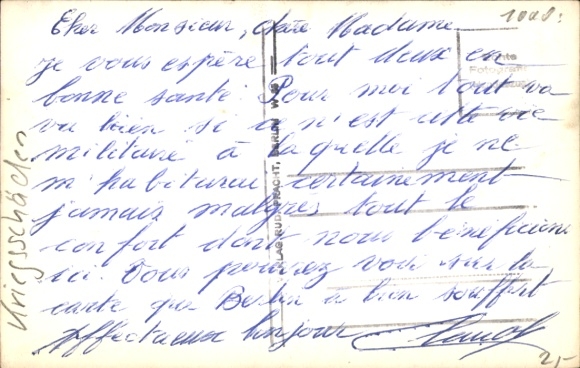 Cher Monsieur, chère Madame
je vous espère tout deux en
bonne santé. Pour moi tout va
va bien si ce n'est cette vie
militaire à laquelle je ne
m'habiturai certainement
jamais malgres tout le
confort dont nous bénéficions
ici. Vous pouvez voir sur la
carte que Berlin a bien souffert
Affectueux bonjour
Kriegsschäden
2,-
Echte
Fotografie
VERLAG RUD. PRACHT, BERLIN W 35